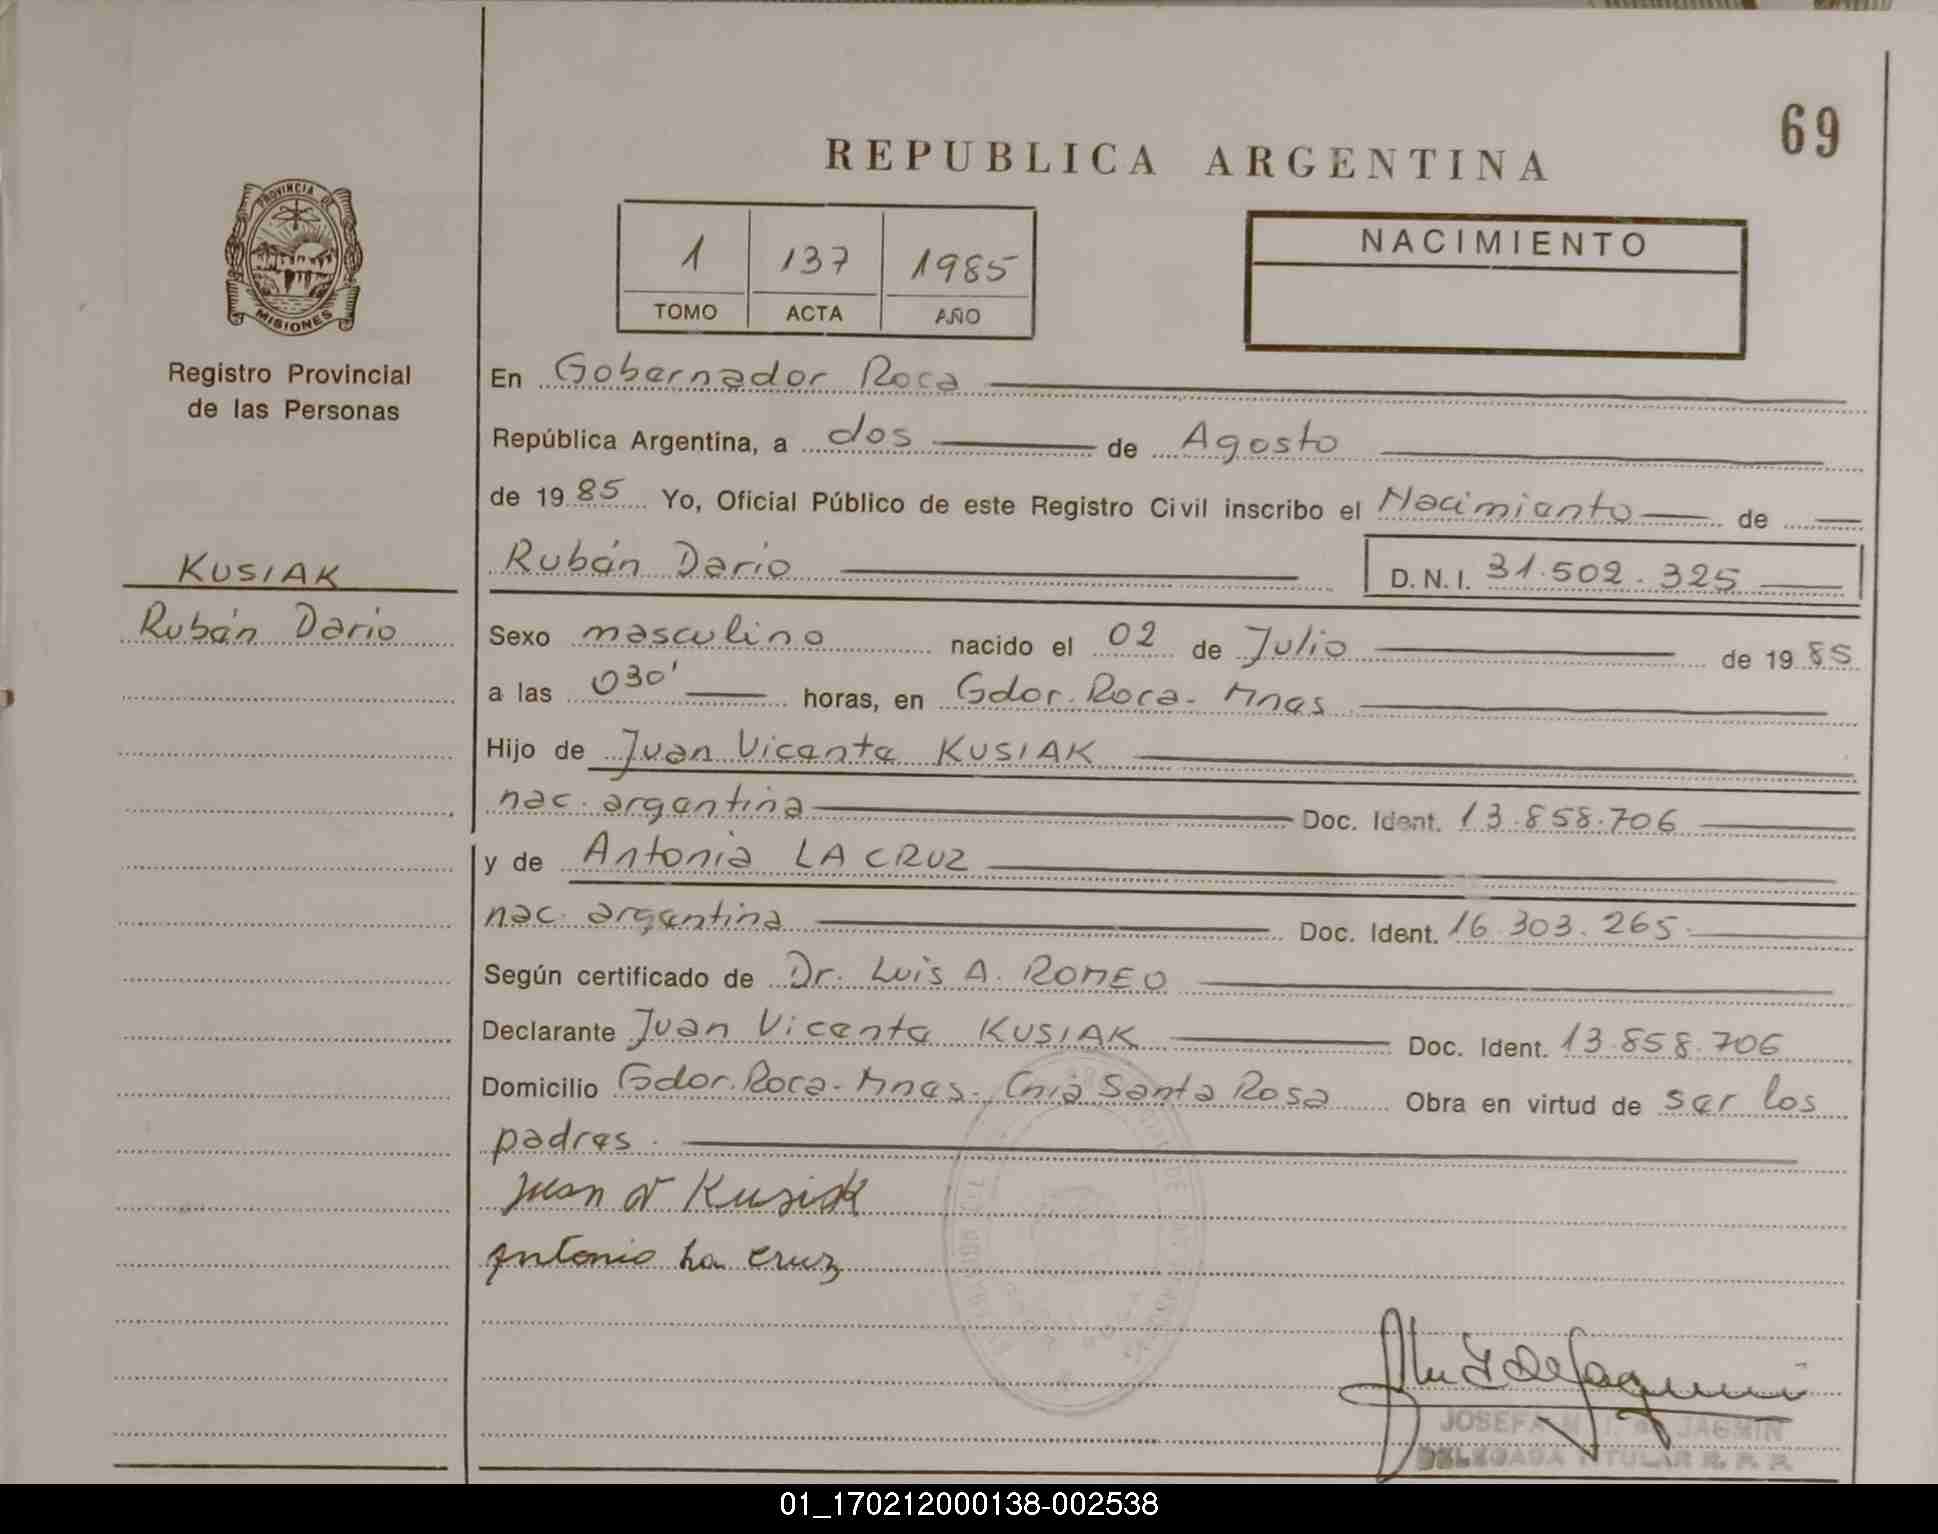 69
REPUBLICA ARGENTINA
PROVINCIA DE
MISIONES
Registro Provincial
de las Personas
1 137 1985
TOMO ACTA AÑO
NACIMIENTO
En Gobernador Roca
República Argentina, a dos de Agosto
de 1985 Yo, Oficial Público de este Registro Civil inscribo el Nacimiento de
Rubén Dario D.N.I. 31.502.325
KUSIAK
Rubén Dario
Sexo masculino nacido el 02 de Julio de 1985
a las 030' horas, en Gdor. Roca - Mnes
Hijo de Juan Vicente KUSIAK
nac. argentina Doc. Ident. 13.858.706
y de Antonia LA CRUZ
nac. argentina Doc. Ident. 16.303.265
Según certificado de Dr. Luis A. ROMEO
Declarante Juan Vicente KUSIAK Doc. Ident. 13.858.706
Domicilio Gdor. Roca - Mnes - Cnia Santa Rosa Obra en virtud de ser los
padres.
Juan V Kusiak
Antonia La Cruz
JOSEFA JAGMIN
DELEGADA TITULAR R. P. P.
01_170212000138-002538